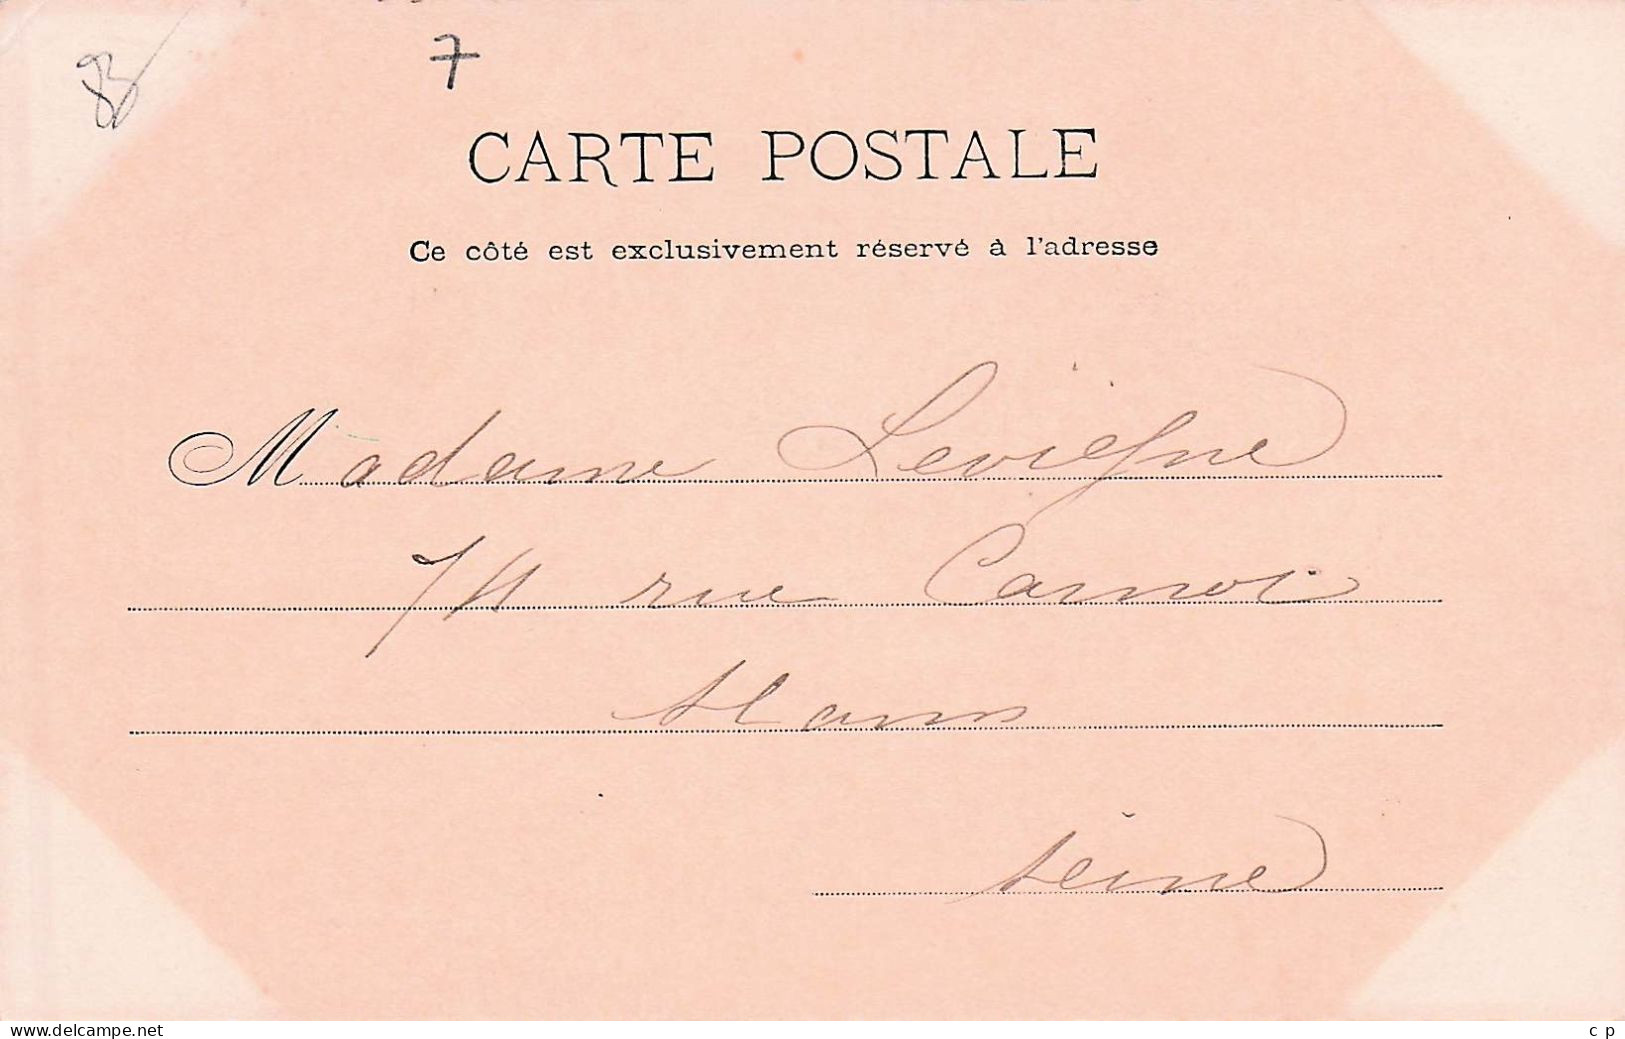 83
7
CARTE POSTALE
Ce côté est exclusivement réservé à l'adresse
Madame Levieyne
74 rue Carnot
Stains
Seine
www.delcampe.net
c p